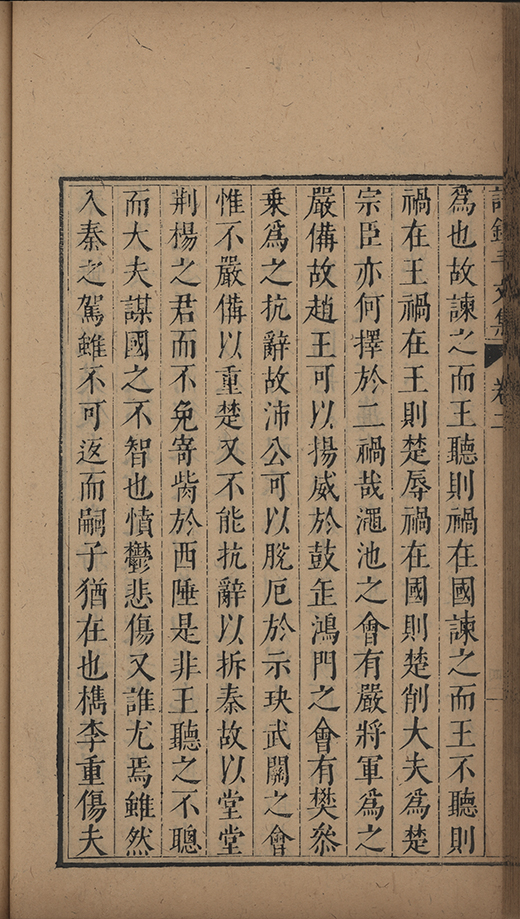 許鍾斗文集 卷二
爲也故諫之而王聽則禍在國諫之而王不聽則
禍在王禍在王則楚辱禍在國則楚削大夫爲楚
宗臣亦何擇於二禍哉澠池之會有嚴將軍爲之
嚴備故趙王可以揚威於鼓缶鴻門之會有樊叅
乗爲之抗辭故沛公可以脫厄於示玦武關之會
惟不嚴備以重楚又不能抗辭以拆秦故以堂堂
荆楊之君而不免寄胔於西陲是非王聽之不聰
而大夫謀國之不智也憤鬱悲傷又誰尤焉雖然
入秦之駕雖不可返而嗣子猶在也檇李重傷夫